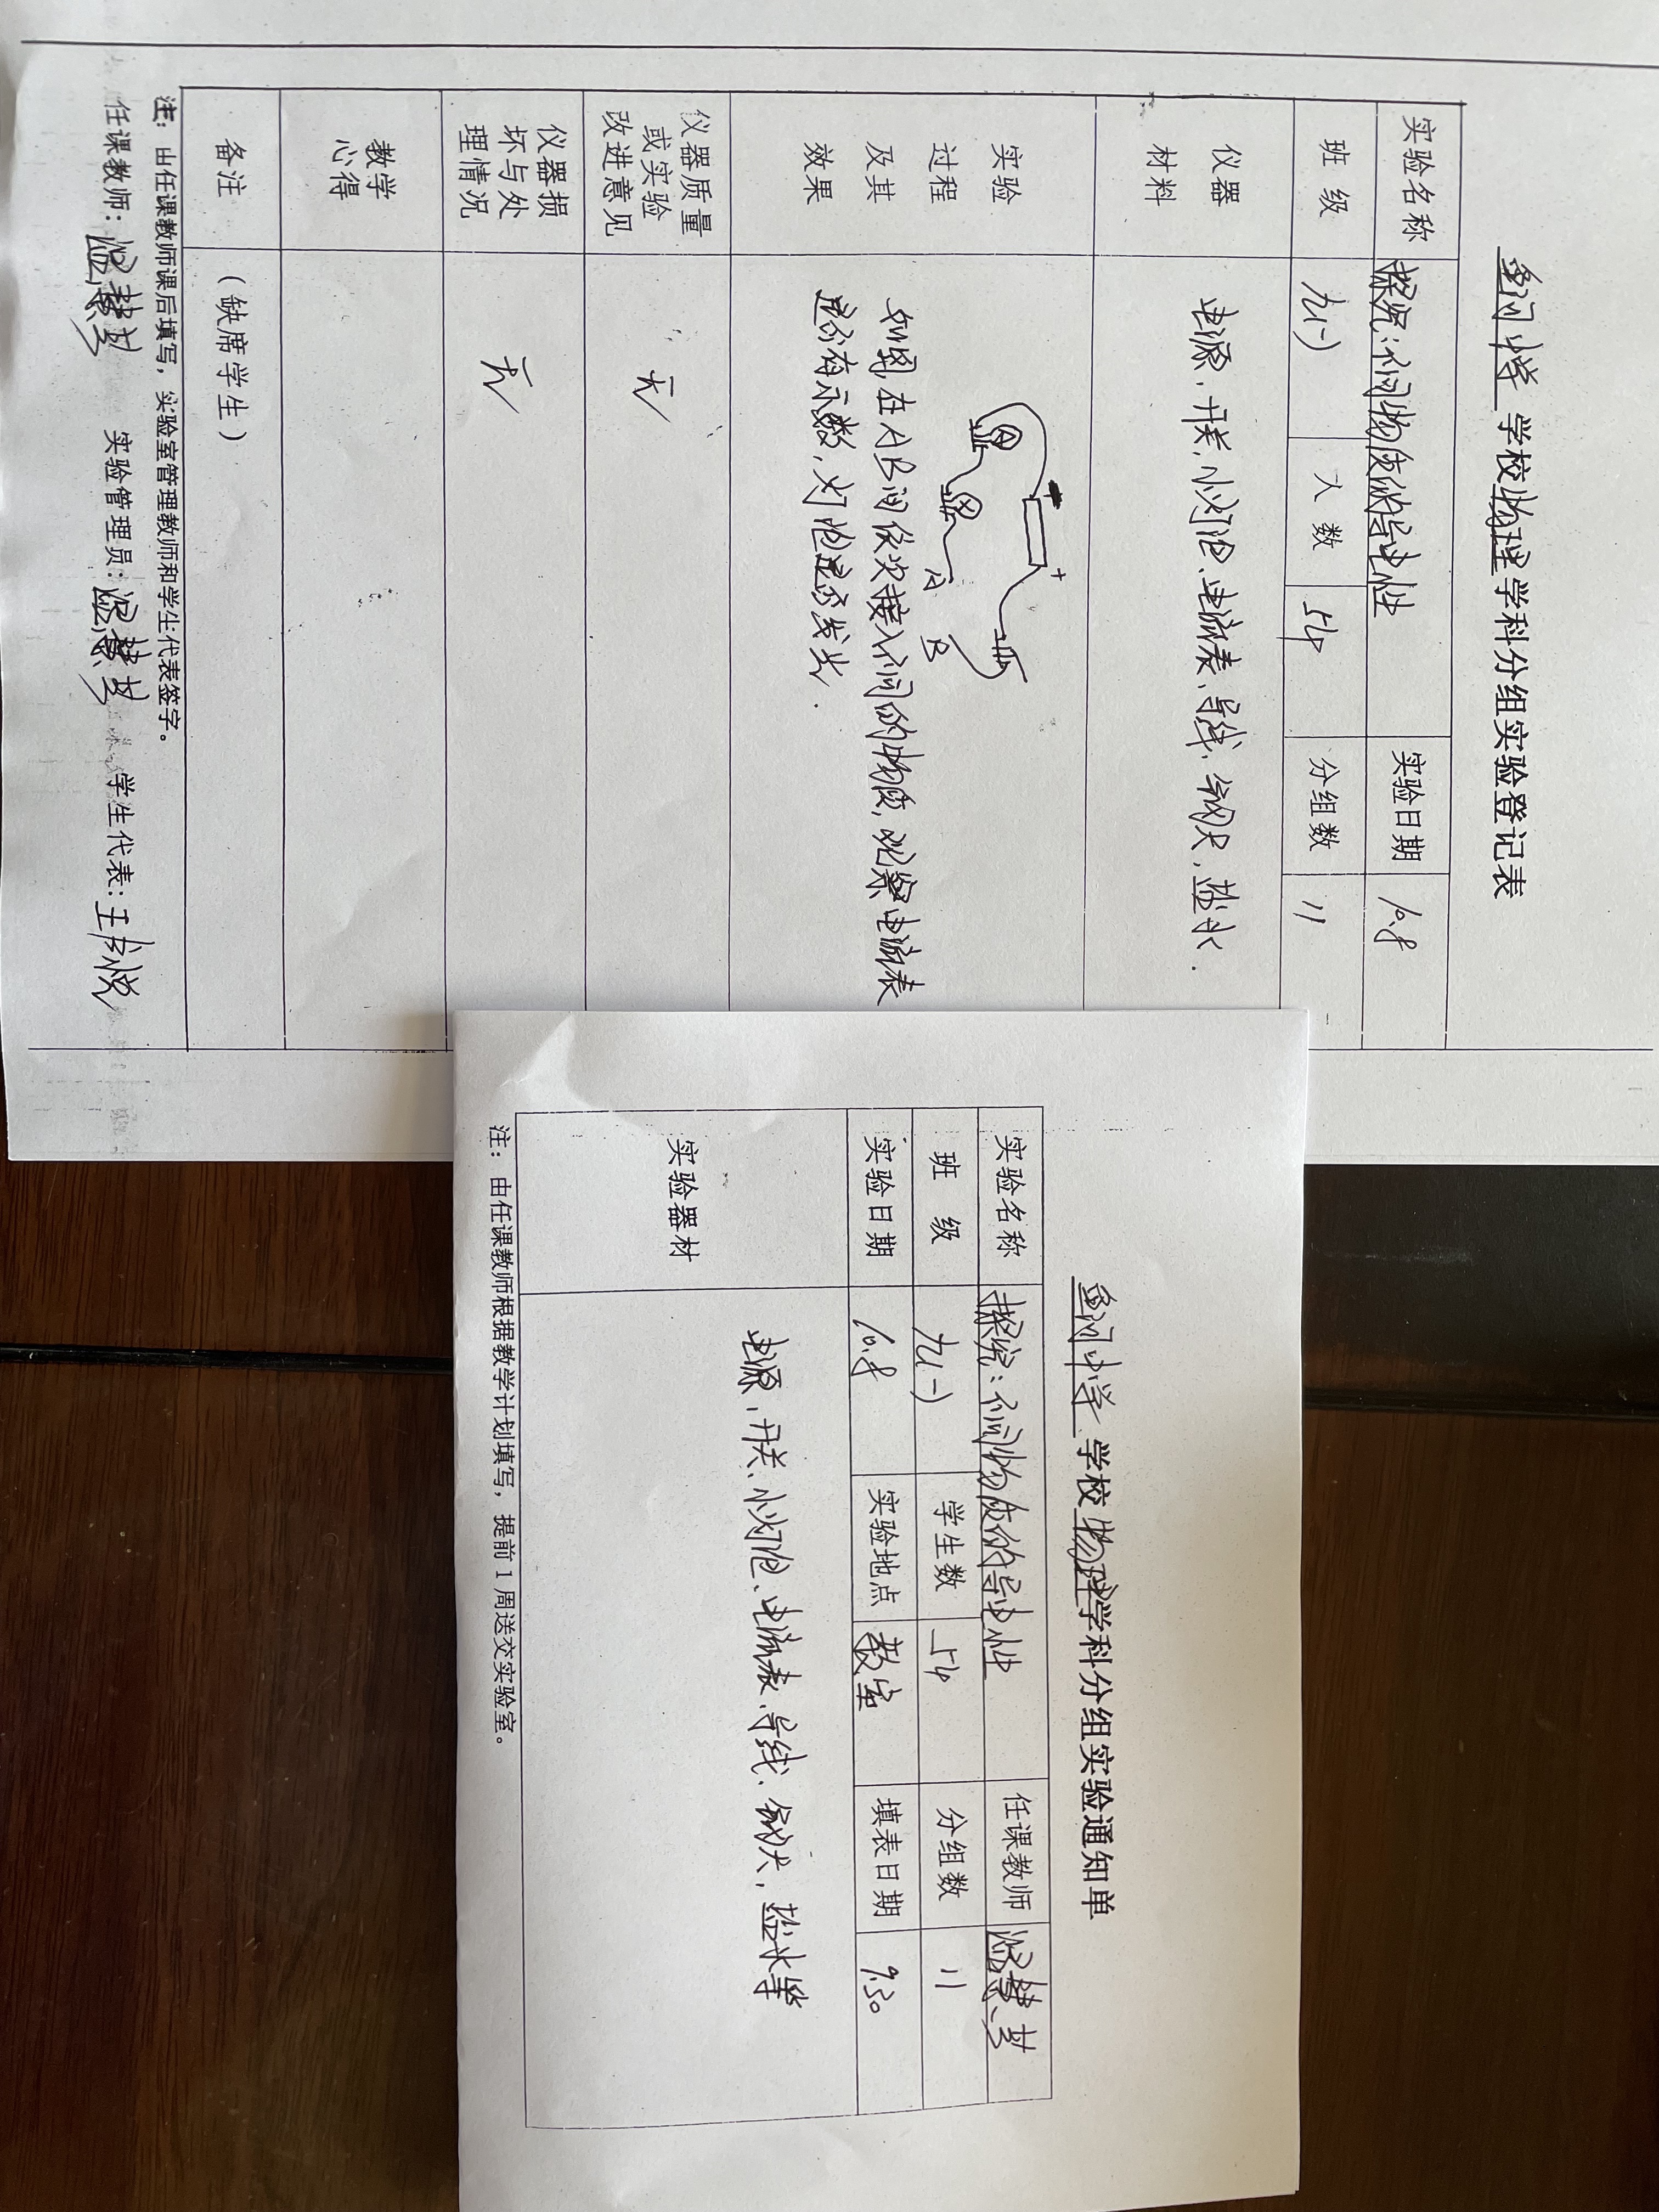 学校物理学科分组实验登记表
实验名称 探究:不同物质的导电性 实验日期 10.8
班 级 九(一) 人 数 54 分组数 11
仪器
材料
电源、开关、小灯泡、电流表、导线、铅笔芯、盐水.
实验
过程
及其
效果
+
A B
如图在AB间依次接入不同的物质,观察电流表
是否有示数,灯泡是否发光.
仪器质量
或实验
改进意见
无
仪器损
坏与处
理情况
无
教学
心得
备注 (缺席学生)
注:由任课教师课后填写,实验室管理教师和学生代表签字。
任课教师: 实验管理员: 学生代表:王
学校物理学科分组实验通知单
实验名称 探究:不同物质的导电性 任课教师
班 级 九(一) 学生数 54 分组数 11
实验日期 10.8 实验地点 教室 填表日期 9.30
实验器材
电源、开关、小灯泡、电流表、导线、铅笔芯、盐水等
注:由任课教师根据教学计划填写,提前1周送交实验室。